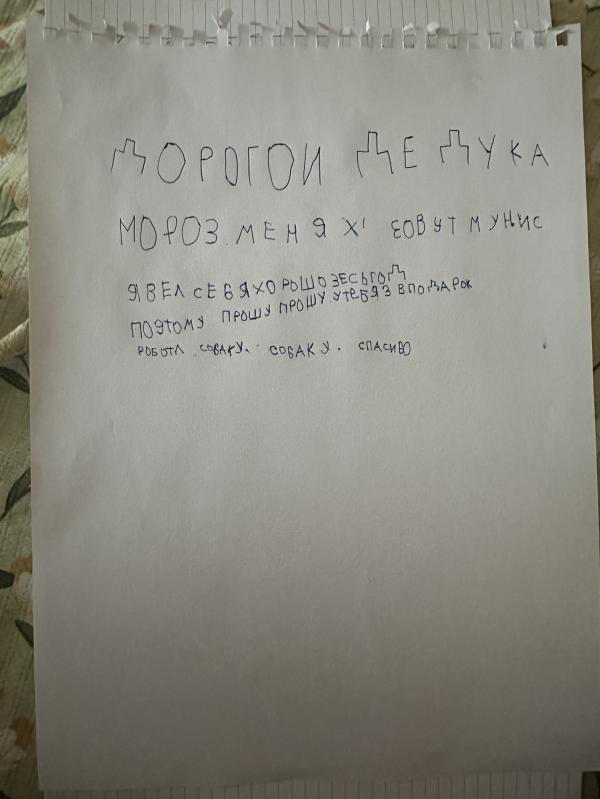 ДОРОГОИ ДЕДУКА
МОРОЗ. МЕНЯ Х' ЕОВУТ МУНИС
Я ВЕЛ СЕБЯ ХОРЫШО ЗЕСЬГОД
ПОЭТОМУ ПРОШУ ПРОШУ УТЕБЯЗ ВПОДАРОК
РОБОТЛ .СОБАКУ.. СОБАКУ. СПАСИВО